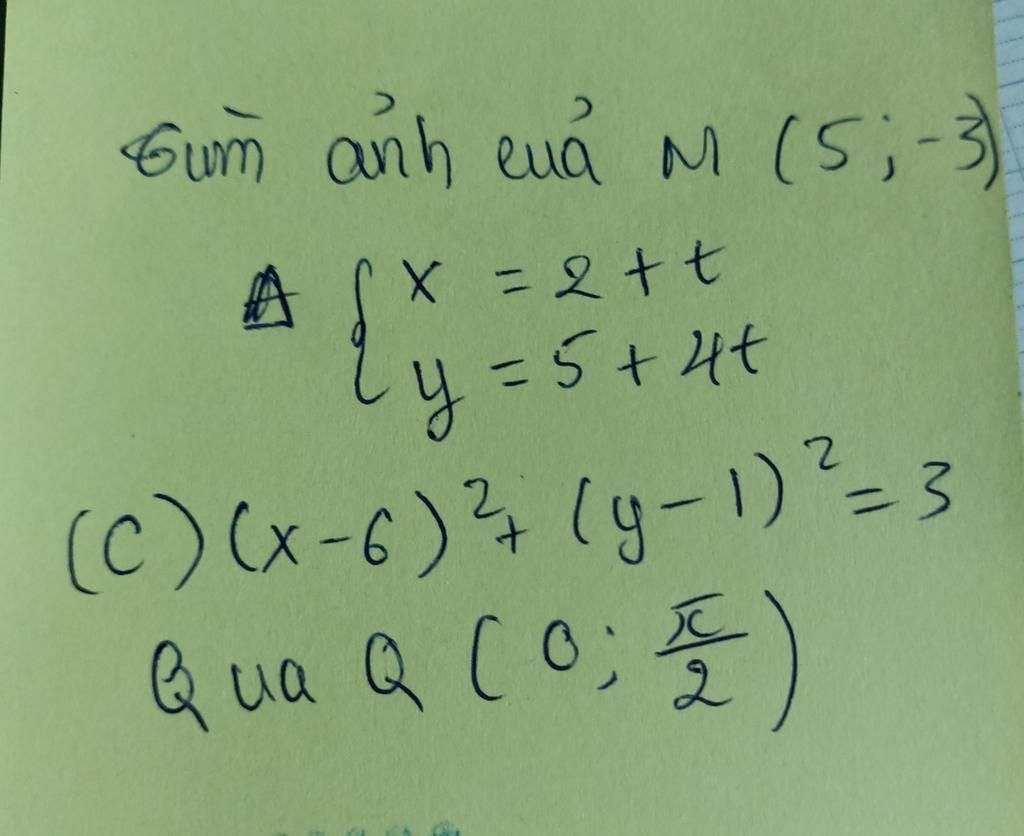 Tìm ảnh của M (5; -3)
Δ { x = 2 + t
y = 5 + 4t
(C) (x - 6)² + (y - 1)² = 3
Qua Q (0; π/2)